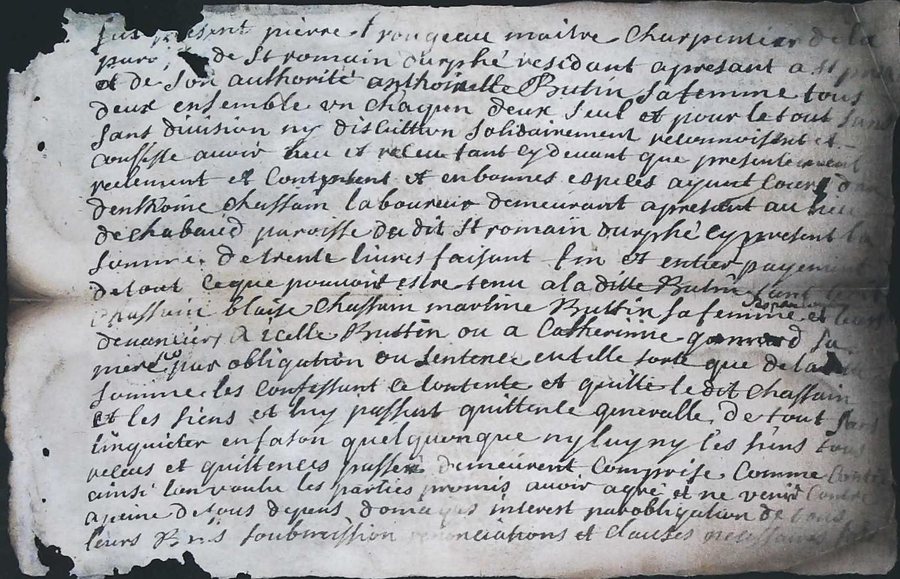 fut présent pierre trougeau maitre charpentier de la
paroi de St romain durphé residant apresant a St
et de son authorite anthoinelle Butin sa femme tous
deux ensemble un chaqun deux seul et pour le tout sans
sans division ny discution solidairement reconnoisent et
confesse avoir heu et receu tant cy devant que presentement
reelement et contentent et en bonnes espeses ayant cours
chassain laboureur demeurant apresant au lieu
de chabaud paroisse du dit St romain durphé cy present la
somme de trente livres faisant fin et entier payement
de tout ce que pouvoit estre tenu a la ditte Butin tant
chassain blaise chassain martine Buttin sa femme et leurs
devanciers a icelle Buttin ou a Catherinne sa
mere par obligation ou sentence en telle sorte que de la
somme les confessant ce contente et quitte le dit chassain
et les siens et luy passent quittence generalle de tout sans
linquieter en fason quelquonque ny luy ny les siens tous
receus et quittences passer demeurent comprise comme
ainsi lon voulu les parties promis avoir agré et ne venir contre
a peine de tous depans domages interest par obligation de tous
leurs Biens soubmission renonciations et clauses necessaires